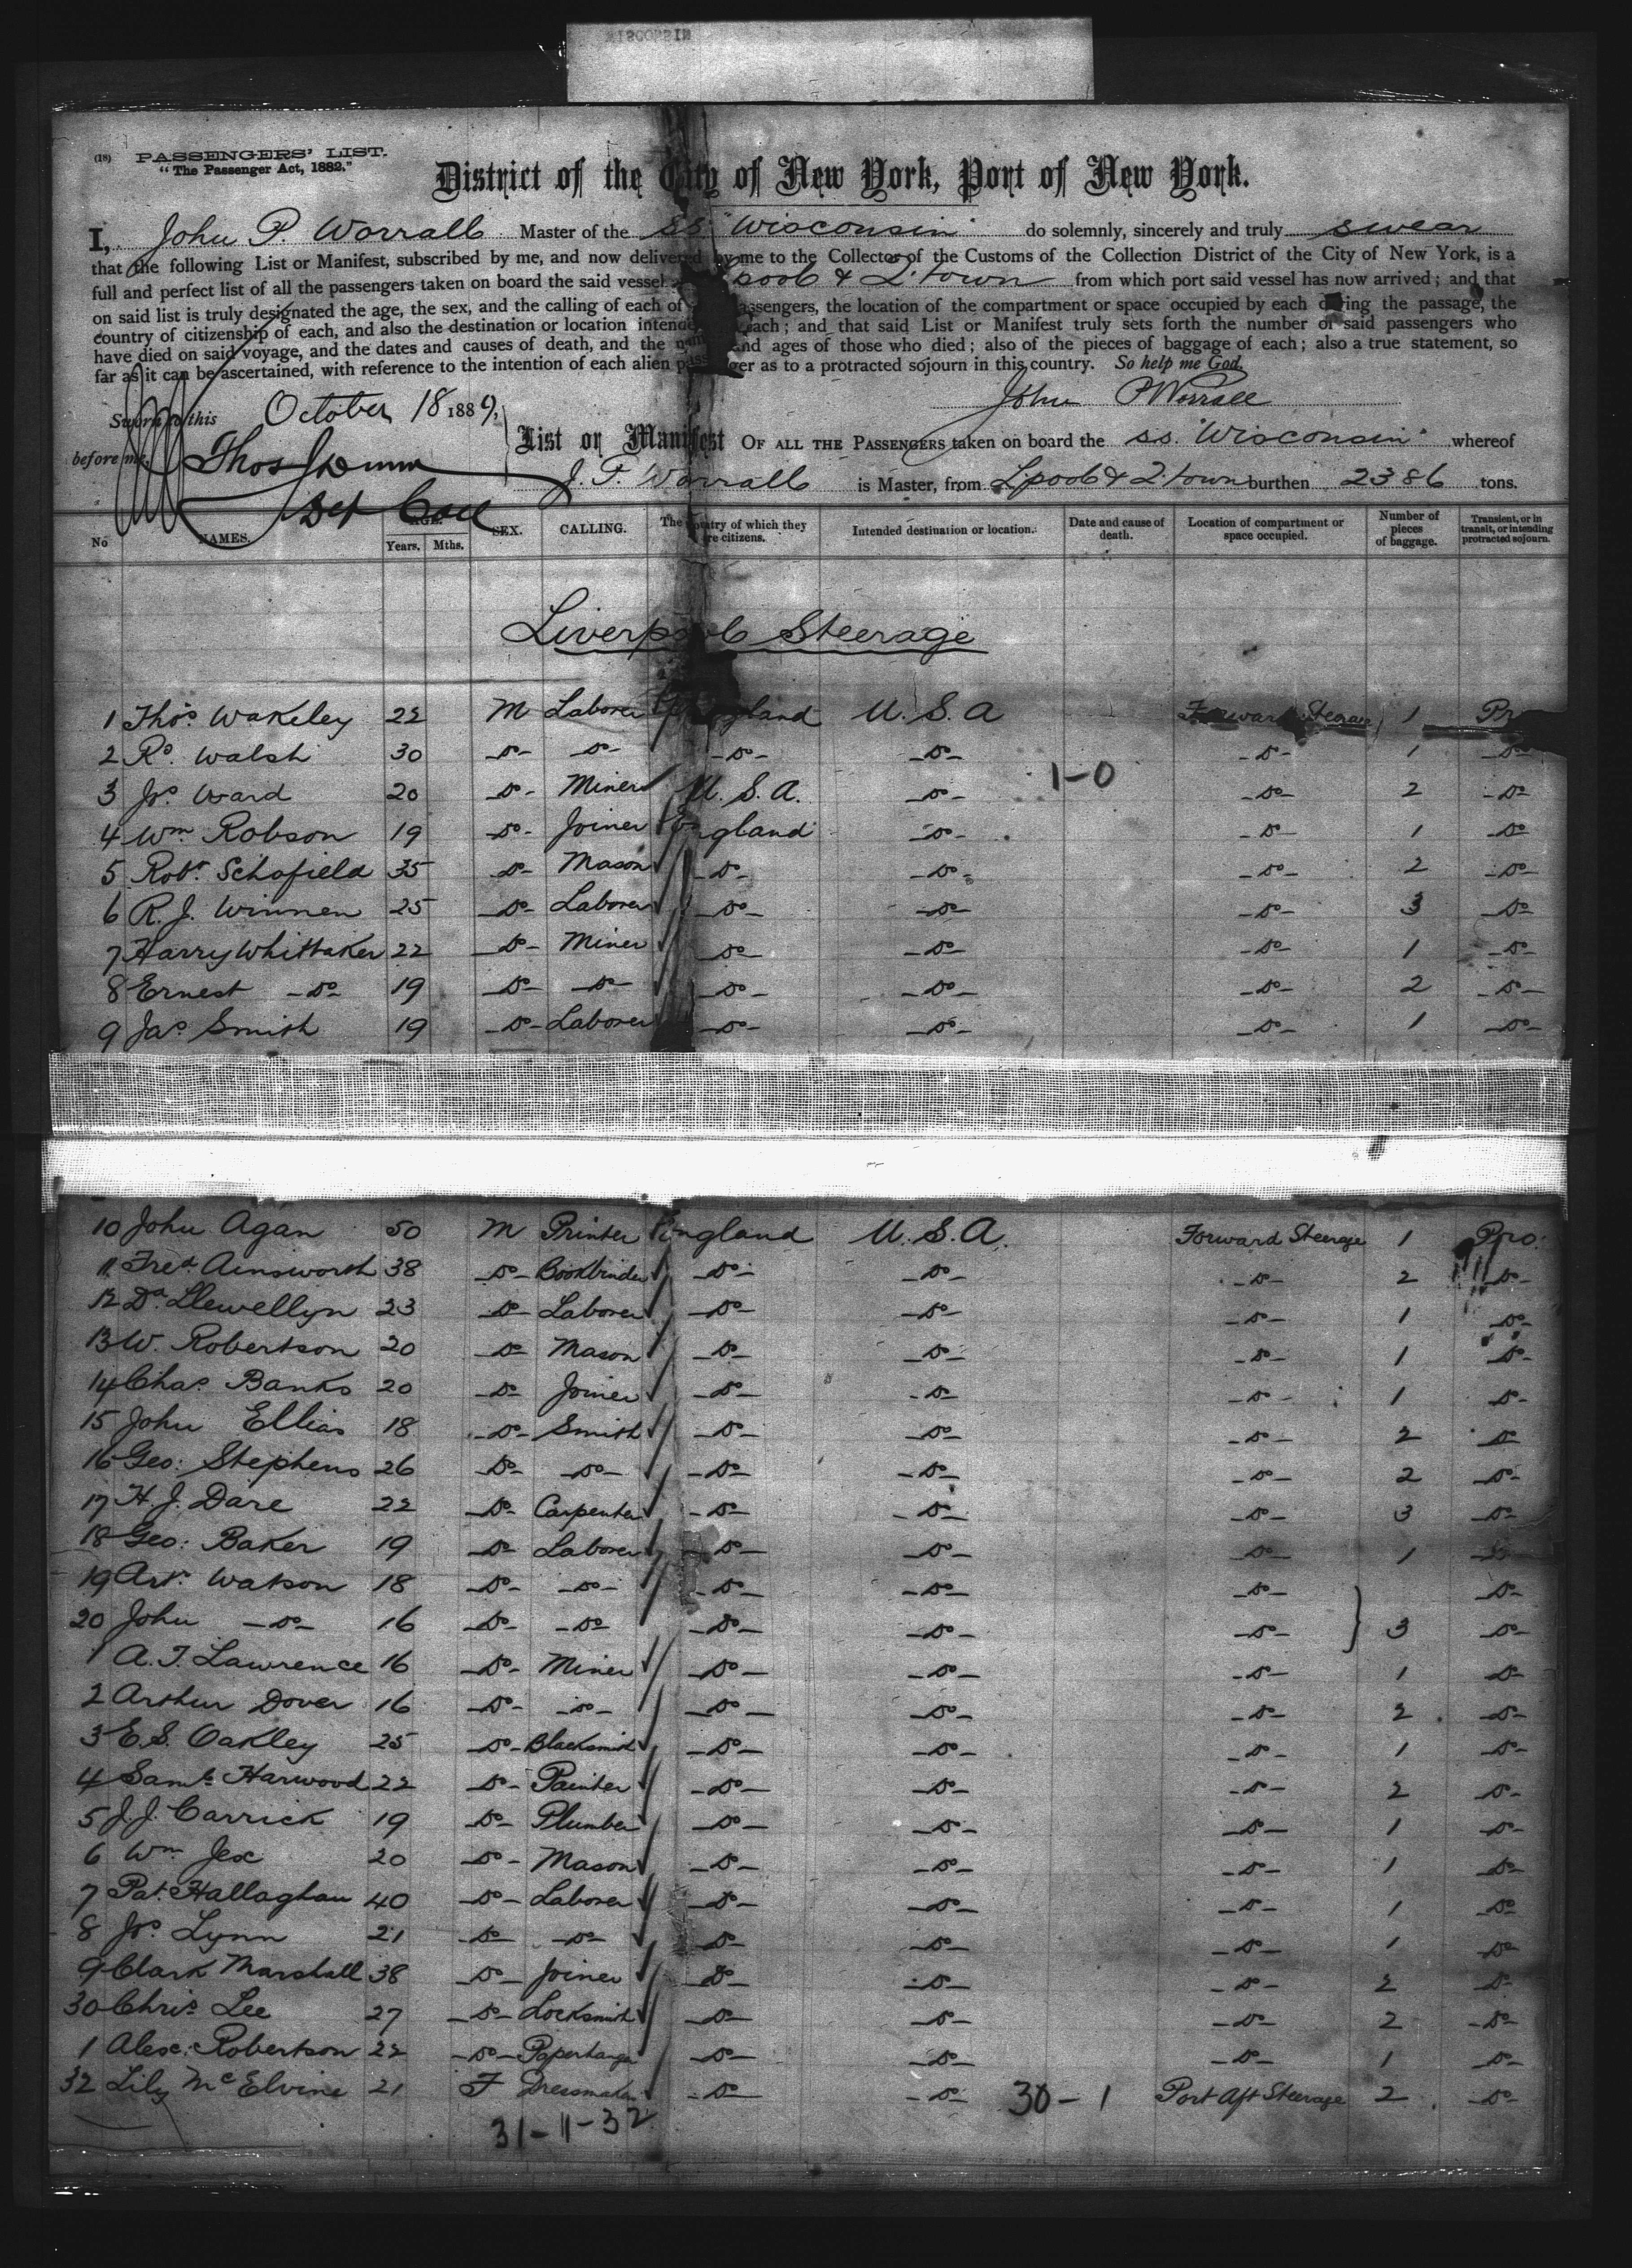 WISCONSIN
(18) PASSENGERS' LIST.
"The Passenger Act, 1882."
District of the City of New York, Port of New York.
I, John P. Worrall Master of the SS "Wisconsin" do solemnly, sincerely and truly swear
that the following List or Manifest, subscribed by me, and now delivered by me to the Collector of the Customs of the Collection District of the City of New York, is a
full and perfect list of all the passengers taken on board the said vessel pool & Q. town from which port said vessel has now arrived; and that
on said list is truly designated the age, the sex, and the calling of each of passengers, the location of the compartment or space occupied by each during the passage, the
country of citizenship of each, and also the destination or location intended each; and that said List or Manifest truly sets forth the number of said passengers who
have died on said voyage, and the dates and causes of death, and the names and ages of those who died; also of the pieces of baggage of each; also a true statement, so
far as it can be ascertained, with reference to the intention of each alien passenger as to a protracted sojourn in this country. So help me God.
Sworn to this October 18 1889, John P Worrall
before me, Thos Dunn
Dep Coll
List or Manifest OF ALL THE PASSENGERS taken on board the s.s. "Wisconsin" whereof
J. P. Worrall is Master, from L'pool & Q. town burthen 2386 tons.
No NAMES. AGE. Years. Mths. SEX. CALLING. The country of which they are citizens. Intended destination or location. Date and cause of death. Location of compartment or space occupied. Number of pieces of baggage. Transient, or in transit, or intending protracted sojourn.
Liverpool Steerage
1 Thos. Wakeley 22 M Laborer England U. S. A Forward Steerage 1 Pr
2 Rd. Walsh 30 -do- -do- -do- -do- -do- 1 -do-
1-0
3 Jos. Ward 20 -do- Miner U. S. A. -do- -do- 2 -do-
4 Wm Robson 19 -do- Joiner England -do- -do- 1 -do-
5 Robt. Schofield 35 -do- Mason -do- -do- -do- 2 -do-
6 R. J. Winnen 25 -do- Laborer -do- -do- -do- 3 -do-
7 Harry Whittaker 22 -do- Miner -do- -do- -do- 1 -do-
8 Ernest -do- 19 -do- -do- -do- -do- -do- 2 -do-
9 Jas. Smith 19 -do- Laborer -do- -do- -do- 1 -do-
10 John Agan 50 M Printer England U. S. A. Forward Steerage 1 Pro.
11 Fred Ainsworth 38 -do- Bookbinder -do- -do- -do- 2 -do-
12 Dd. Llewellyn 23 -do- Laborer -do- -do- -do- 1 -do-
13 W. Robertson 20 -do- Mason -do- -do- -do- 1 -do-
14 Chas. Banks 20 -do- Joiner -do- -do- -do- 1 -do-
15 John Ellias 18 -do- Smith -do- -do- -do- 2 -do-
16 Geo: Stephens 26 -do- -do- -do- -do- -do- 2 -do-
17 H. J. Dare 22 -do- Carpenter -do- -do- -do- 3 -do-
18 Geo: Baker 19 -do- Laborer -do- -do- -do- 1 -do-
19 Art. Watson 18 -do- -do- -do- -do- -do- -do-
20 John -do- 16 -do- -do- -do- -do- -do- } 3 -do-
1 A. T. Lawrence 16 -do- Miner -do- -do- -do- 1 -do-
2 Arthur Dover 16 -do- -do- -do- -do- -do- 2 -do-
3 E. S. Oakley 25 -do- Blacksmith -do- -do- -do- 1 -do-
4 Saml. Harwood 22 -do- Painter -do- -do- -do- 2 -do-
5 J. J. Carrick 19 -do- Plumber -do- -do- -do- 1 -do-
6 Wm Jex 20 -do- Mason -do- -do- -do- 1 -do-
7 Pat. Hallaghan 40 -do- Laborer -do- -do- -do- 1 -do-
8 Jos. Lynn 21 -do- -do- -do- -do- -do- 1 -do-
9 Clark Marshall 38 -do- Joiner -do- -do- -do- 2 -do-
30 Chris. Lee 27 -do- Locksmith -do- -do- -do- 2 -do-
1 Alex: Robertson 22 -do- Paperhanger -do- -do- -do- 1 -do-
32 Lily McElvine 21 F Dressmaker -do- -do- 30-1 Port Aft Steerage 2 -do-
31-11-32